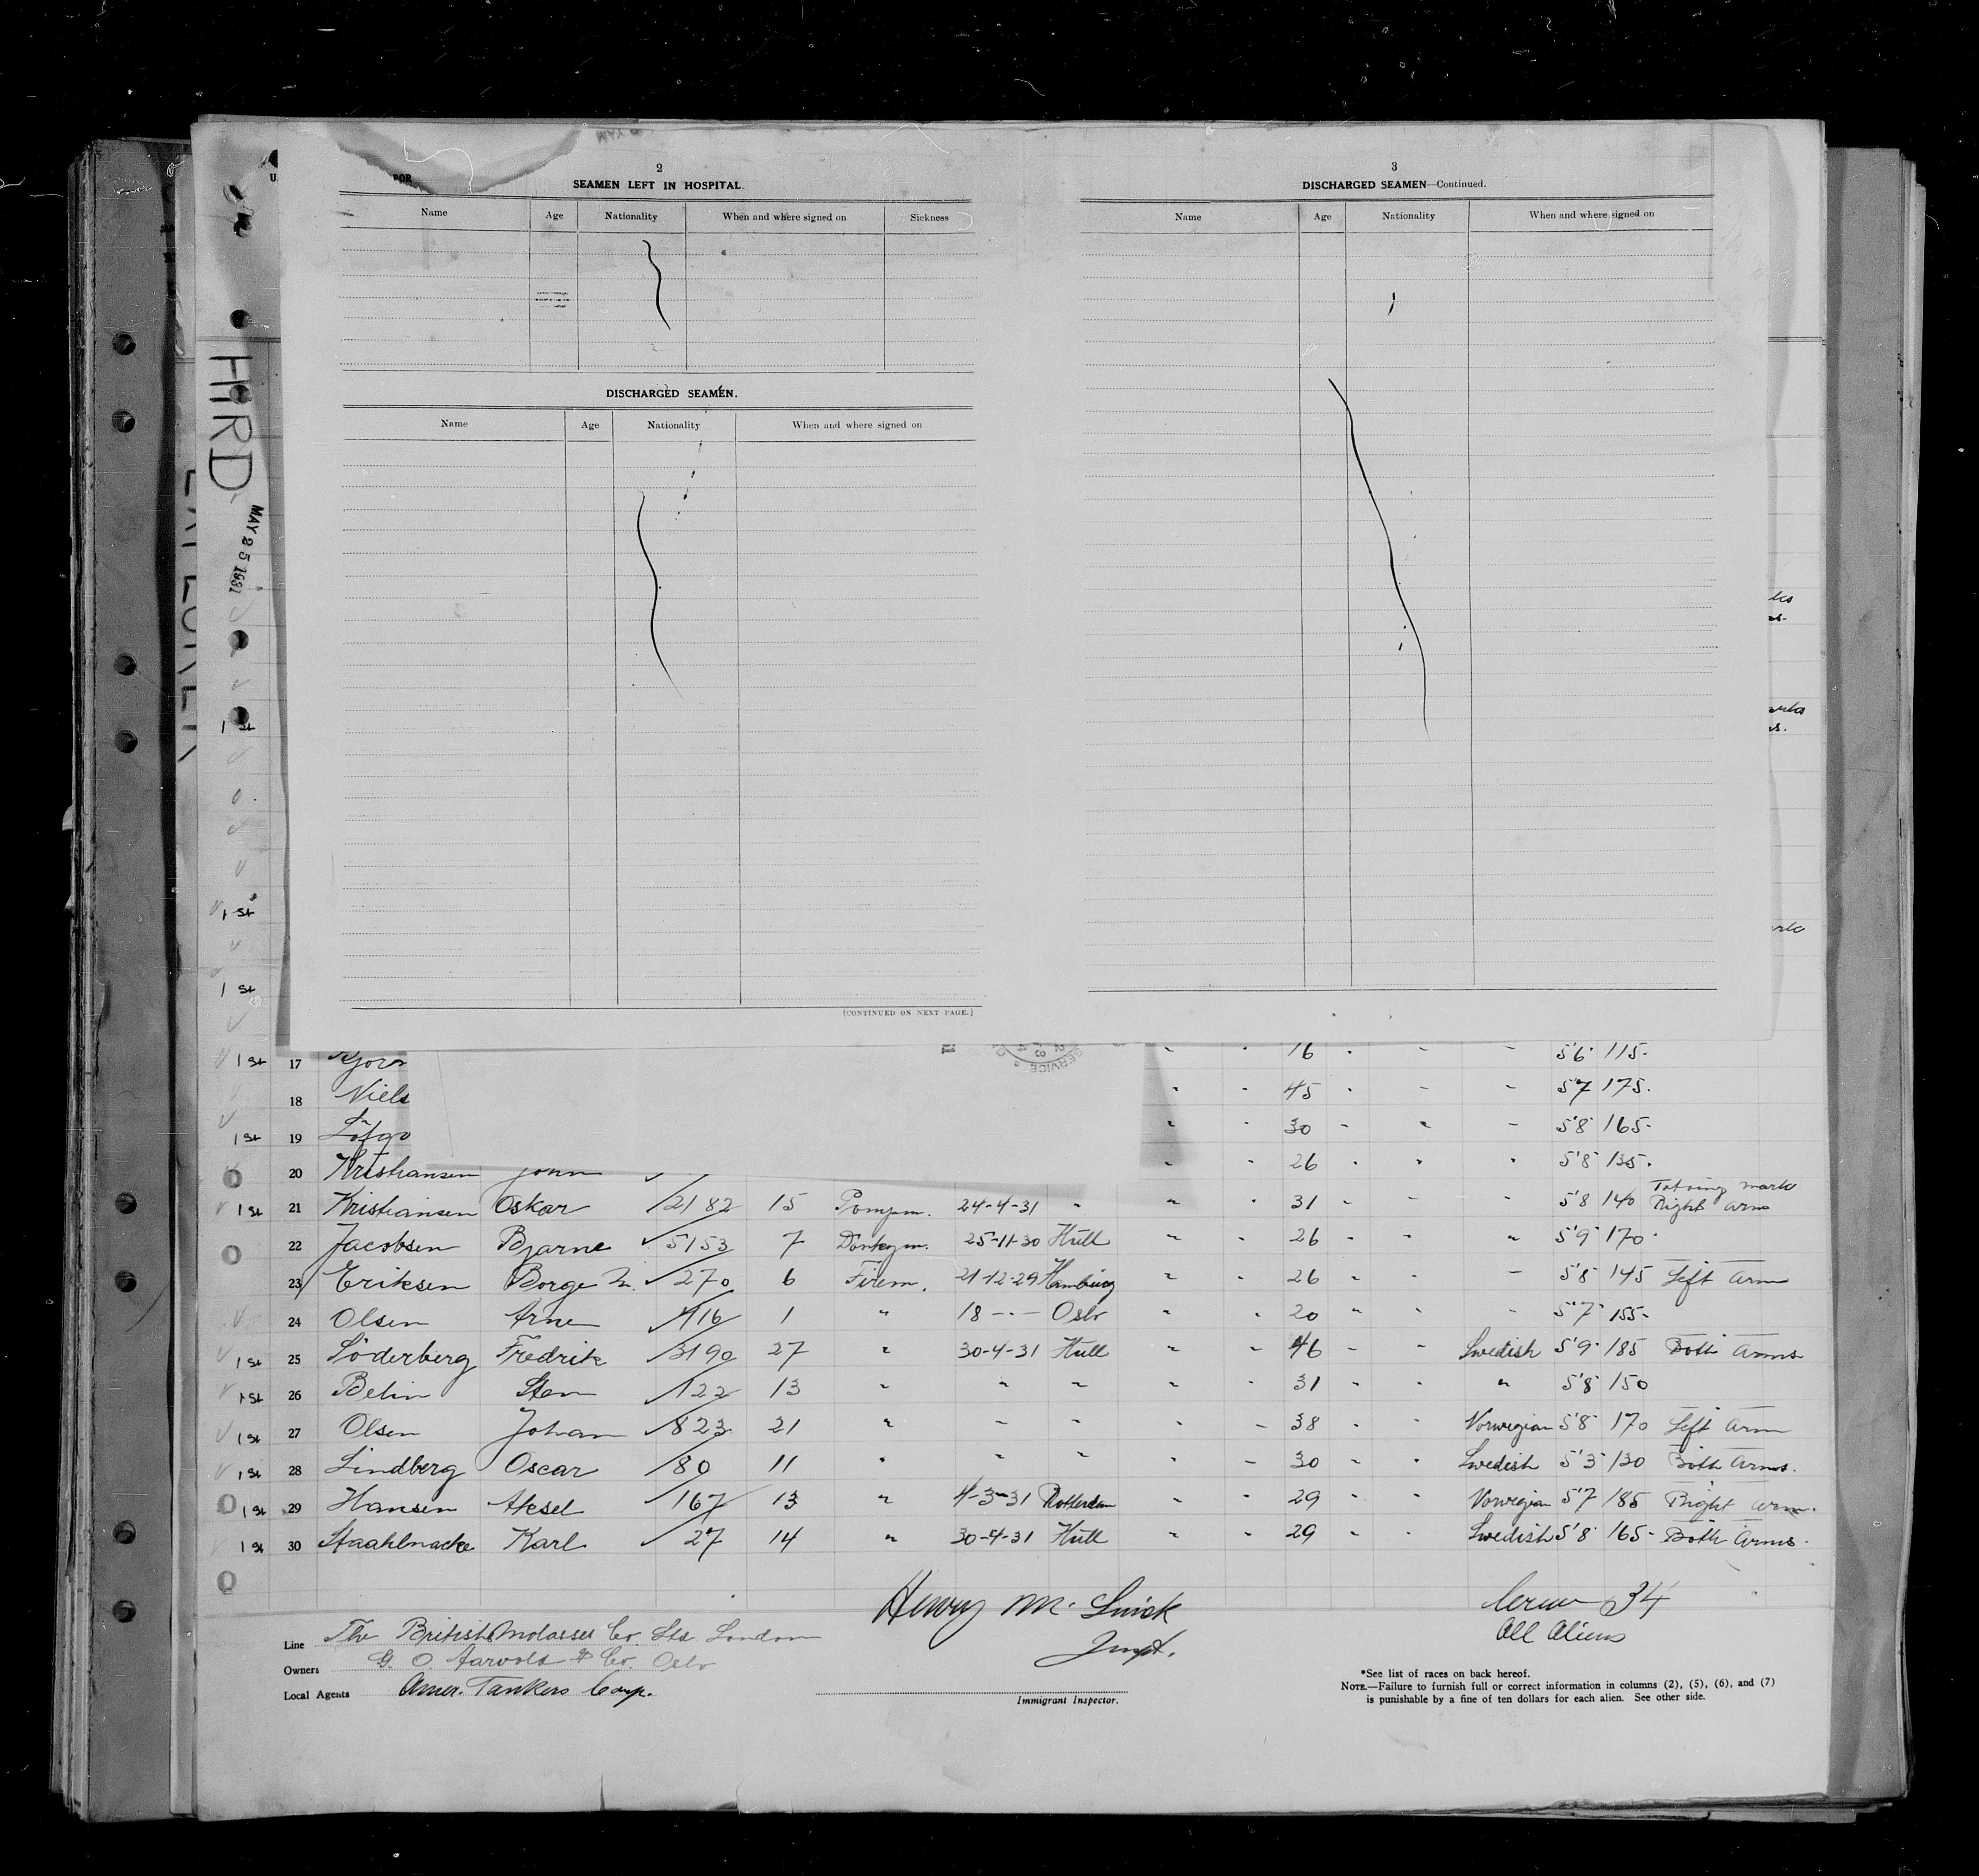 2
SEAMEN LEFT IN HOSPITAL.
Name Age Nationality When and where signed on Sickness
DISCHARGED SEAMEN.
Name Age Nationality When and where signed on
(CONTINUED ON NEXT PAGE.)
3
DISCHARGED SEAMEN—Continued.
Name Age Nationality When and where signed on
HRD
MAY 25 1931
1 St
1 St
1 St
1 St 17 16 5'6" 115
18 Niels 45 5'7 175
1 St 19 30 5'8" 165
20 Kristiansen John 26 5'8" 135
1 St 21 Kristiansen Oskar 2182 15 Pompm. 24-4-31 " " - 31 - - " 5'8 140 Right Arm
22 Jacobsen Bjarne 5153 7 Donkeym. 25-11-30 Hull " - 26 - - " 5'9" 170
23 Eriksen Borge 270 6 Firem. 21-12-29 Hamburg " - 26 " - - 5'8" 145 Left Arm
24 Olsen Arne 416 1 " 18 - - Oslo " - 20 " - - 5'7" 155
1 St 25 Söderberg Fredrik 3190 27 " 30-4-31 Hull " - 46 - - Swedish 5'9" 185 Both Arms
1 St 26 Belin Sten 122 13 " " " " - 31 - - " 5'8" 150
1 St 27 Olsen Johan 823 21 " - - " - 38 - - Norwegian 5'8" 170 Left Arm
1 St 28 Lindberg Oscar 80 11 " " " " - 30 - - Swedish 5'3" 130 Both Arms.
1 St 29 Hansen Aksel 167 13 " 4-3-31 Rotterdam " - 29 - - Norwegian 5'7 185 Right Arm.
1 St 30 Staahlnacke Karl 27 14 " 30-4-31 Hull " - 29 - - Swedish 5'8" 165 Both Arms.
Henry Mc.
Inspt.
Crew 34
All Aliens
Line The British Molasses Co. Ltd London
Owners G. O. Aarvold & Co. Oslo
Local Agents Amer. Tankers Corp.
Immigrant Inspector.
*See list of races on back hereof.
NOTE.—Failure to furnish full or correct information in columns (2), (5), (6), and (7)
is punishable by a fine of ten dollars for each alien. See other side.